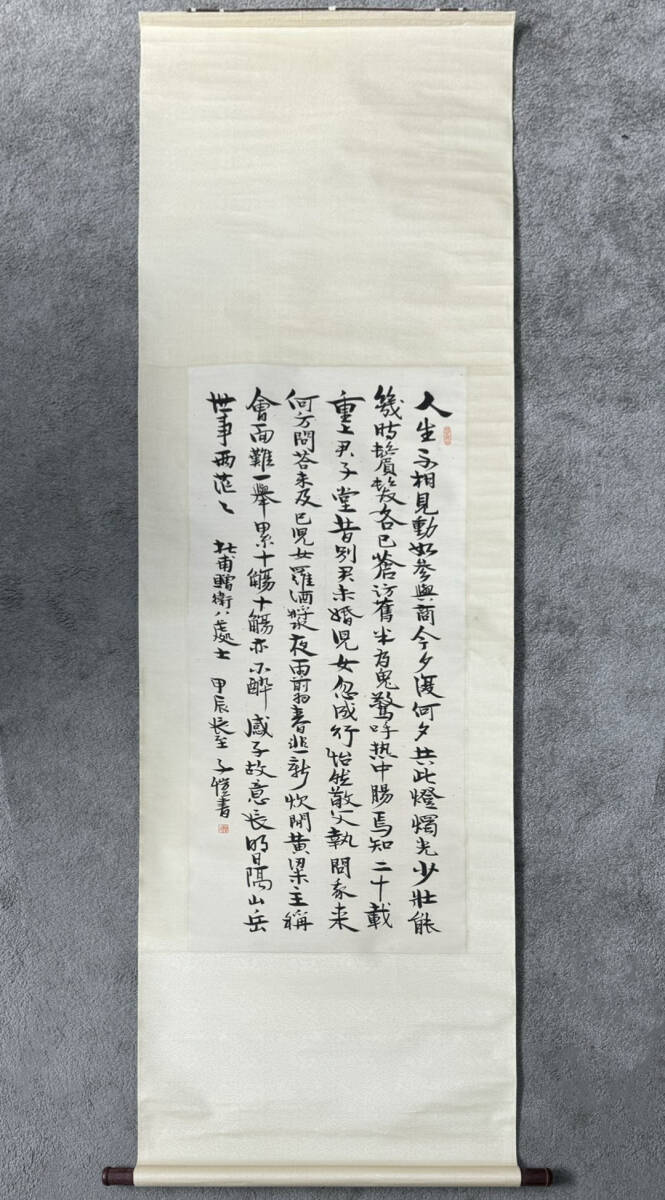 人生不相見動如參與商今夕復何夕共此燈燭光少壯能
幾時鬢髮各已蒼訪舊半為鬼驚呼热中腸焉知二十載
重上君子堂昔別君未婚兒女忽成行怡然敬父執問我来
何方問荅未及已兒女羅酒漿夜雨剪春韭新炊間黄粱主稱
會面難一舉累十觴十觴亦不醉感子故意長明日隔山岳
世事兩茫〻 杜甫贈衛八處士 甲辰長至 子愷書